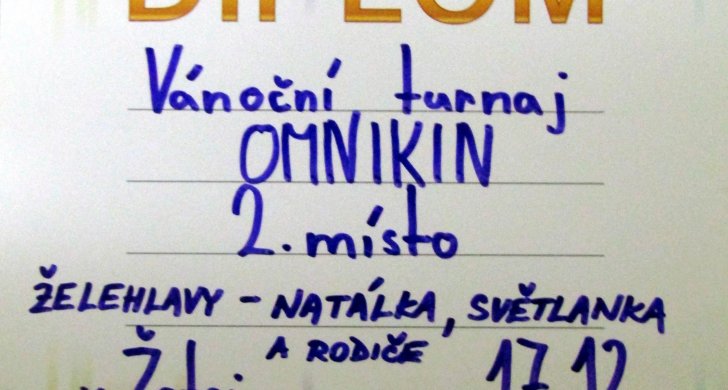 DIPLOM
Vánoční turnaj
OMNIKIN
2. místo
ŽELEHLAVY - NATÁLKA, SVĚTLANKA
A RODIČE
17.12